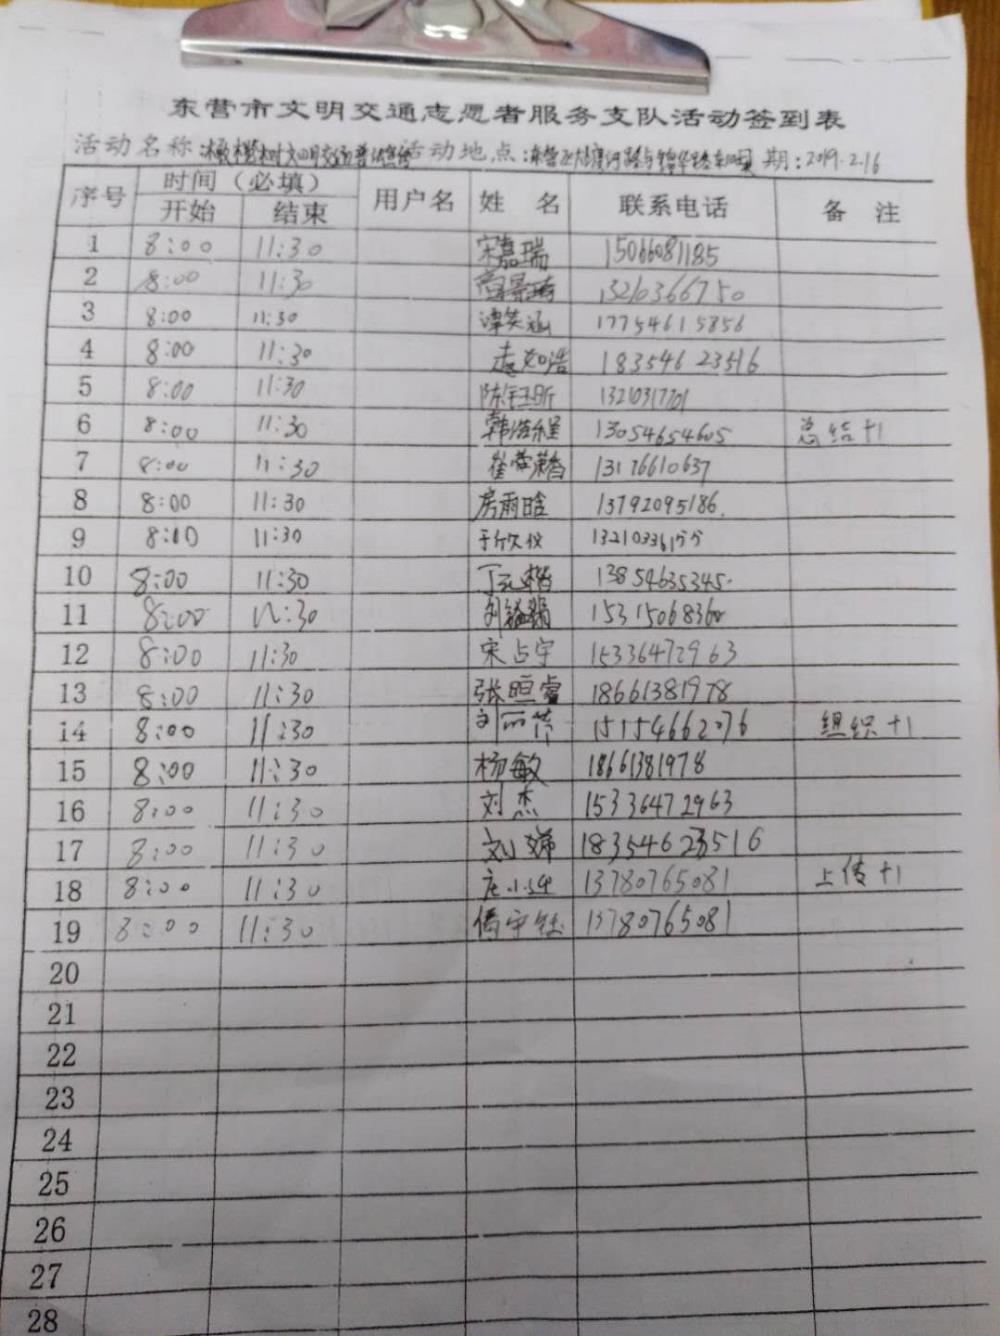 东营市文明交通志愿者服务支队活动签到表
活动名称: 活动地点: 期:2019.2.16
序号 时间（必填） 用户名 姓 名 联系电话 备 注
开始 结束
1 8:00 11:30 宋嘉瑞 15066081185
2 8:00 11:30 13210366750
3 8:00 11:30 谭笑涵 17754615856
4 8:00 11:30 孟如浩 18354623516
5 8:00 11:30 陈钰昕 13210317701
6 8:00 11:30 韩浩程 13054654605 总结+1
7 8:00 11:30 崔 13176610637
8 8:00 11:30 房雨晗 13792095186.
9 8:00 11:30 于欣仪
10 8:00 11:30 丁 13854635345.
11 8:00 11:30 刘 15315068360
12 8:00 11:30 宋占宇 15336472963
13 8:00 11:30 张恒睿 18661381978
14 8:00 11:30 刘丽芹 15154662076 组织+1
15 8:00 11:30 杨敏 18661381978
16 8:00 11:30 刘杰 15336472963
17 8:00 11:30 刘娣 18354623516
18 8:00 11:30 庄小 13780765081 上传+1
19 8:00 11:30 13780765081
20
21
22
23
24
25
26
27
28